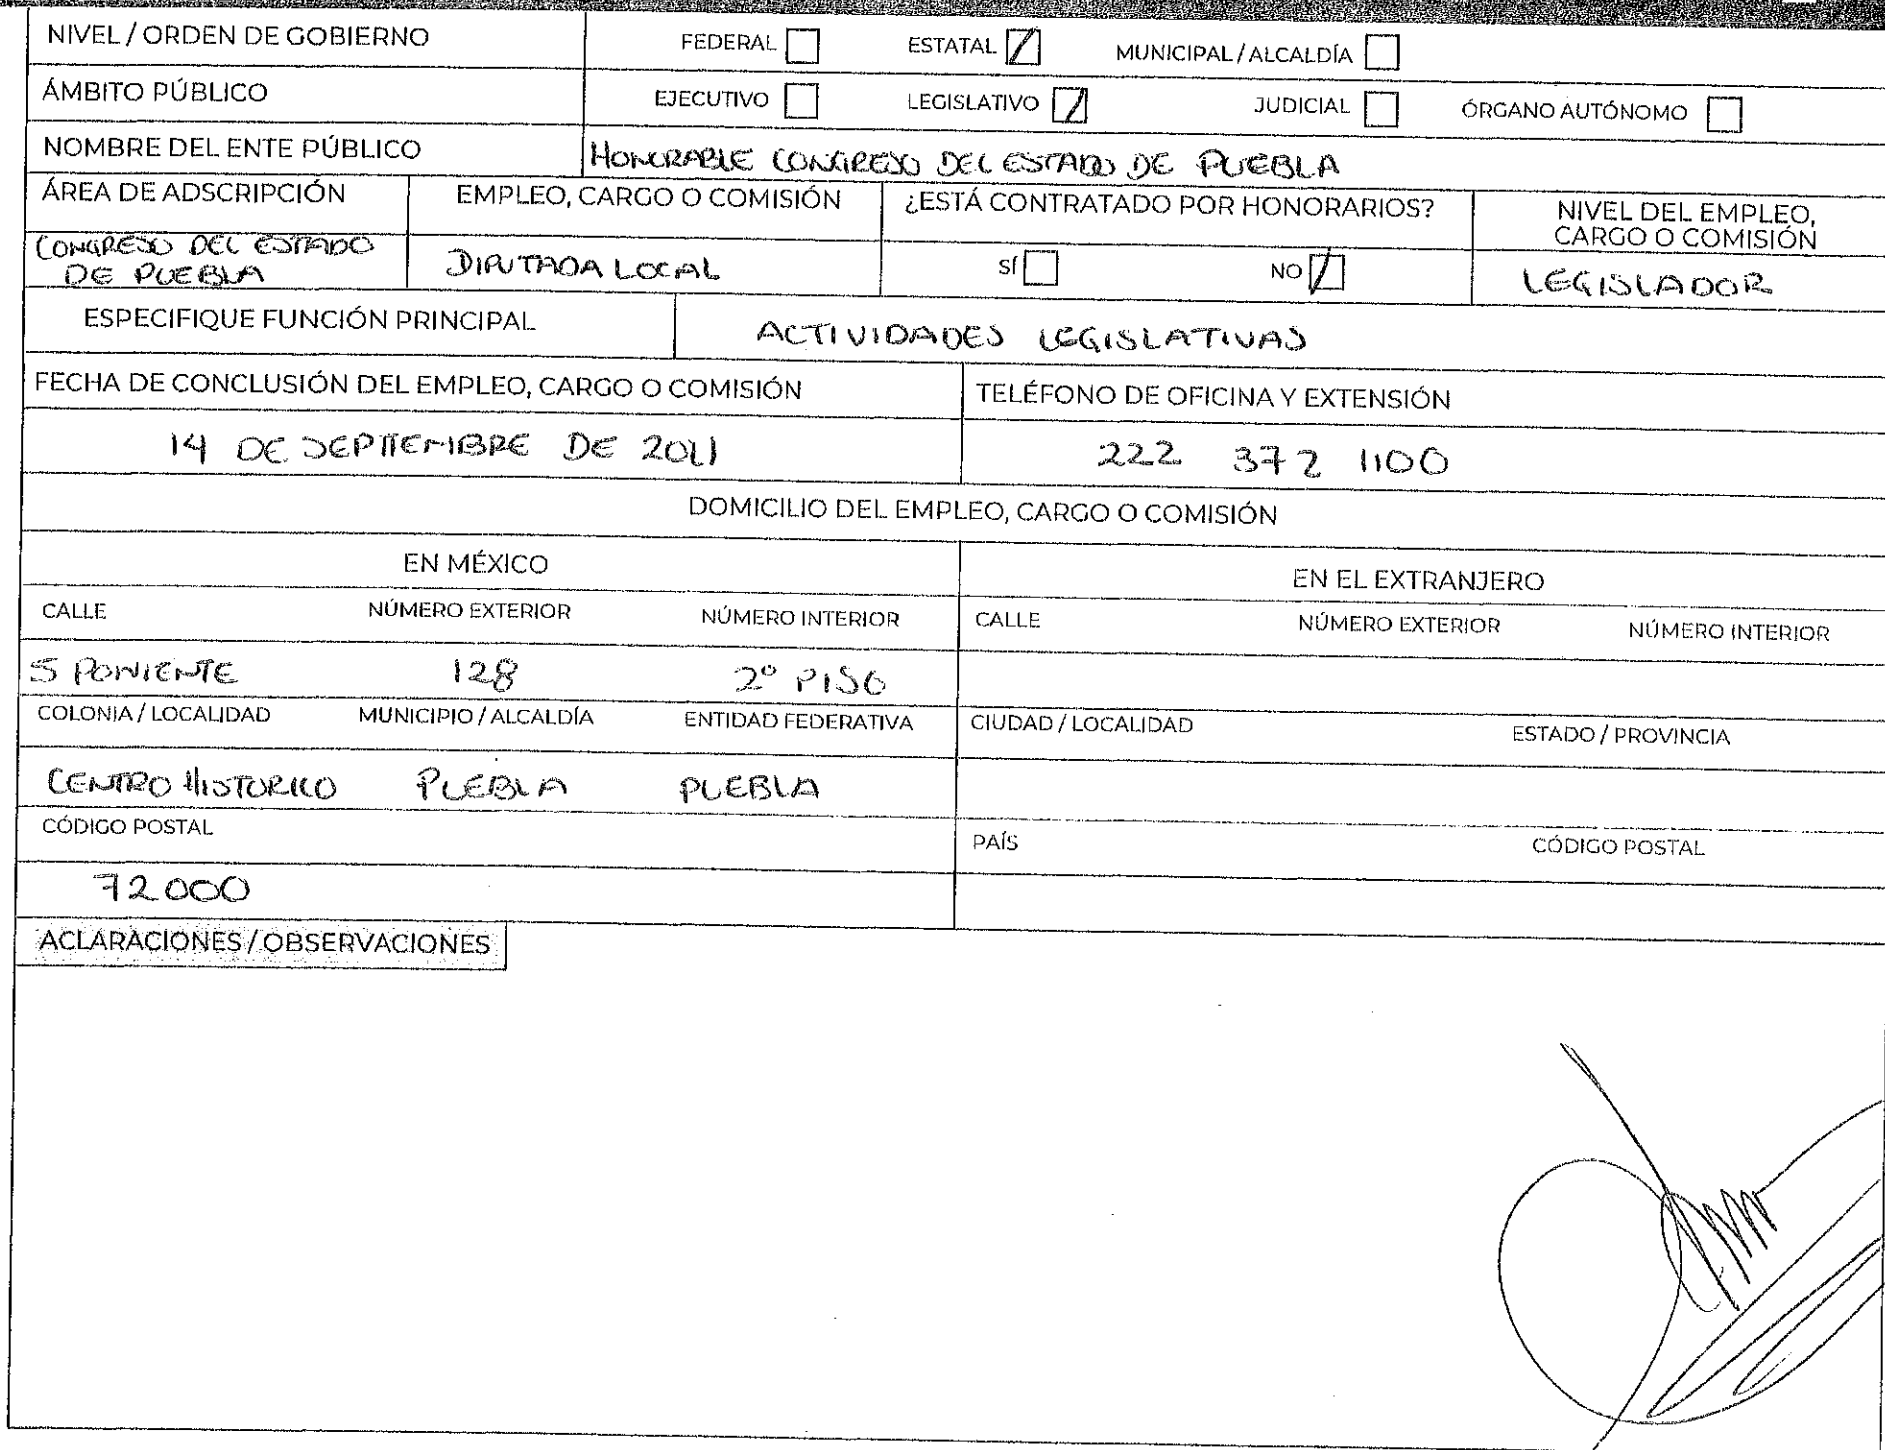 NIVEL / ORDEN DE GOBIERNO FEDERAL ESTATAL MUNICIPAL / ALCALDÍA
ÁMBITO PÚBLICO EJECUTIVO LEGISLATIVO JUDICIAL ÓRGANO AUTÓNOMO
NOMBRE DEL ENTE PÚBLICO HONORABLE CONGRESO DEL ESTADO DE PUEBLA
ÁREA DE ADSCRIPCIÓN EMPLEO, CARGO O COMISIÓN ¿ESTÁ CONTRATADO POR HONORARIOS? NIVEL DEL EMPLEO,
CARGO O COMISIÓN
CONGRESO DEL ESTADO
DE PUEBLA DIPUTADA LOCAL SÍ NO LEGISLADOR
ESPECIFIQUE FUNCIÓN PRINCIPAL ACTIVIDADES LEGISLATIVAS
FECHA DE CONCLUSIÓN DEL EMPLEO, CARGO O COMISIÓN TELÉFONO DE OFICINA Y EXTENSIÓN
14 DE SEPTIEMBRE DE 222 372 1100
DOMICILIO DEL EMPLEO, CARGO O COMISIÓN
EN MÉXICO EN EL EXTRANJERO
CALLE NÚMERO EXTERIOR NÚMERO INTERIOR CALLE NÚMERO EXTERIOR NÚMERO INTERIOR
5 PONIENTE 128 2º PISO
COLONIA / LOCALIDAD MUNICIPIO / ALCALDÍA ENTIDAD FEDERATIVA CIUDAD / LOCALIDAD ESTADO / PROVINCIA
CENTRO HISTORICO PUEBLA PUEBLA
CÓDIGO POSTAL PAÍS CÓDIGO POSTAL
72000
ACLARACIONES / OBSERVACIONES